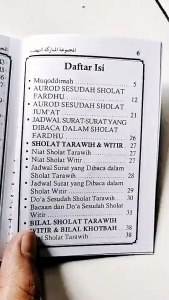 المجموعة المباركة
6
Daftar Isi
• Muqoddimah 5
• AUROD SESUDAH SHOLAT
FARDHU 12
• AUROD SESUDAH SHOLAT
JUM'AT 21
• JADWAL SURAT-SURAT YANG
DIBACA DALAM SHOLAT
FARDHU 26
• SHOLAT TARAWIH & WITIR 27
• Niat Sholat Tarawih 27
• Niat Sholat Witir 27
• Jadwal Surat yang Dibaca dalam
Sholat Tarawih 28
• Jadwal Surat yang Dibaca dalam
Sholat Witir 29
• Do'a Sesudah Sholat Tarawih 29
• Bacaan dan Do'a Sesudah Sholat
Witir 31
• BILAL SHOLAT TARAWIH
WITIR & BILAL KHOTBAH 38
Sholat Tarawih 38